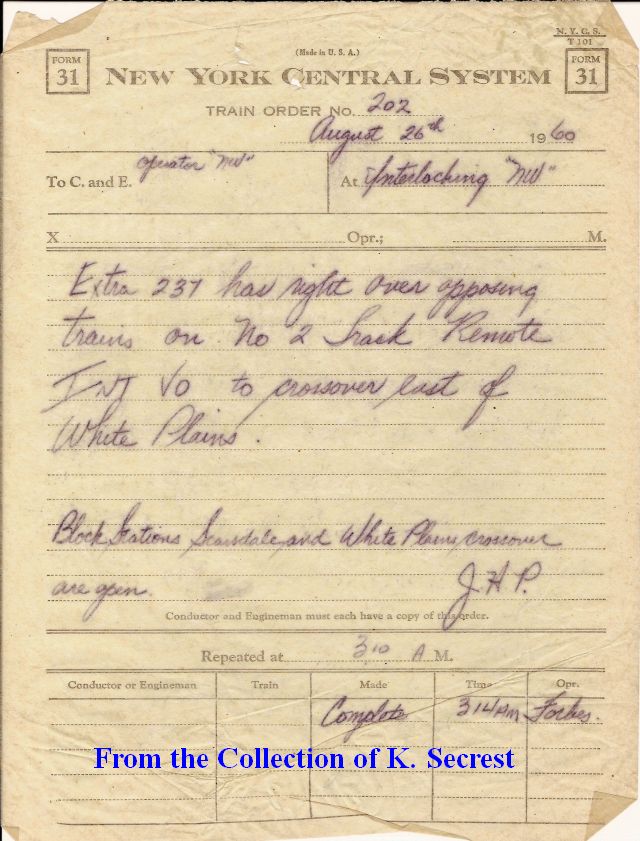 N. Y. C. S.
T 101
(Made in U. S. A.)
FORM 31 NEW YORK CENTRAL SYSTEM FORM 31
TRAIN ORDER No. 202
August 26th 1960
To C. and E. operator "NW" At Interlocking "NW"
X Opr.; M.
Extra 237 has right over opposing
trains on No 2 track Remote
INT VO to crossover east of
White Plains.
Block Stations Scarsdale and White Plains crossover
are open. J.H.P.
Conductor and Engineman must each have a copy of this order.
Repeated at 310 A M.
Conductor or Engineman Train Made Time Opr.
Complete 314 AM Forbes.
From the Collection of K. Secrest